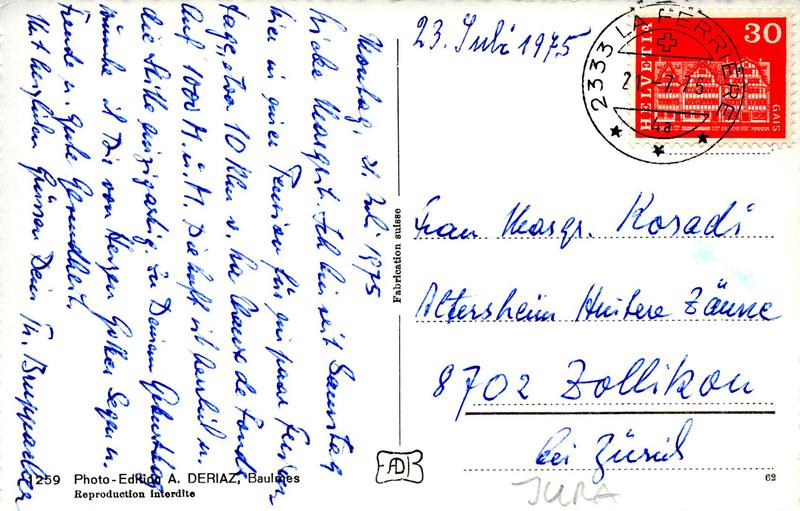 Montag, 21. Juli 1975
Liebe Margrit. Ich bin seit Samstag
hier in einer Pension für ein paar Ferien-
tage, etwa 10 Km v. La Chaux de Fonds
auf 1000 M. ü. M. Die Luft ist herrlich u.
die Stille einzigartig. Zu Deinem Geburtstag
wünsche ich Dir von Herzen Gottes Segen u.
Freude u. gute Gesundheit.
Mit herzlichen Grüssen Dein Th. Brupparcher
23. Juli 1975
2333 LA FERRIERE
21.-7.75
4a
HELVETIA
30
GAIS
Frau Margr. Koradi
Altersheim Hintere Zäune
8702 Zollikon
bei Zürich
JURA
Fabrication suisse
ADB
1259 Photo-Edition A. DERIAZ, Baulmes
Reproduction interdite
62